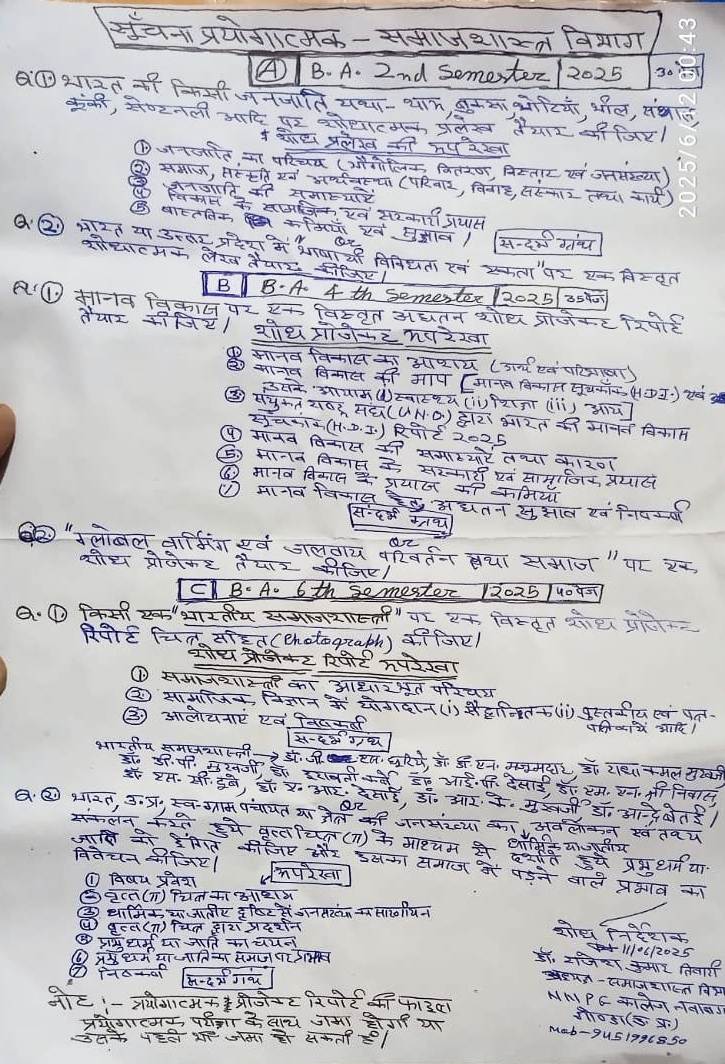 सूचना प्रयोगात्मक - समाजशास्त्र विभाग
(A) B.A. 2nd Semester 2025 30 पेज
Q① भारत की किसी जनजाति यथा- थारू, बुक्सा, भोटियाँ, भील, संथाल
कूकी, सेण्टनली आदि पर शोधात्मक प्रलेख तैयार कीजिए।
शोध प्रलेख की रूपरेखा
① जनजाति का परिचय (भौगोलिक वितरण, विस्तार एवं जनसंख्या)
② समाज, संस्कृति एवं अर्थव्यवस्था (परिवार, विवाह, संस्कार तथा कार्य)
③ जनजाति की समस्यायें
④ विकास के सामाजिक एवं सरकारी प्रयास
⑤ वास्तविक कमियाँ एवं सुझाव।
सन्दर्भ ग्रंथ
Or
Q.② भारत या उत्तर प्रदेश में "भाषायी विविधता एवं एकता" पर एक विस्तृत
शोधात्मक लेख तैयार कीजिए।
B B.A. 4th Semester 2025 35पेज
Q.① मानव विकास पर एक विस्तृत अद्यतन शोध प्रोजेक्ट रिपोर्ट
तैयार कीजिए।
शोध प्रोजेक्ट रूपरेखा
① मानव विकास का आशय (अर्थ एवं परिभाषा)
② मानव विकास की माप [मानव विकास सूचकांक (H.D.I.) एवं
उसके आयाम (i) स्वास्थ्य (ii) शिक्षा (iii) आय]
③ संयुक्त राष्ट्र संघ (U.N.O.) द्वारा भारत की मानव विकास
सूचकांक (H.D.I.) रिपोर्ट 2025
④ मानव विकास की समस्यायें तथा कारण
⑤ मानव विकास के सरकारी एवं सामाजिक प्रयास
⑥ मानव विकास के प्रयास की कमियाँ
⑦ मानव विकास हेतु अद्यतन सुझाव एवं निष्कर्ष
सन्दर्भ ग्रंथ
Or
Q2. "ग्लोबल वार्मिंग एवं जलवायु परिवर्तन तथा समाज" पर एक
शोध प्रोजेक्ट तैयार कीजिए।
C B.A. 6th Semester 2025 40पेज
Q.① किसी एक "भारतीय समाजशास्त्री" पर एक विस्तृत शोध प्रोजेक्ट
रिपोर्ट चित्र सहित (Photograph) कीजिए।
शोध प्रोजेक्ट रिपोर्ट रूपरेखा
① समाजशास्त्री का आधारभूत परिचय
② सामाजिक विज्ञान में योगदान (i) सैद्धान्तिक (ii) पुस्तकीय एवं पत्र-
पत्रिकायें आदि।
③ आलोचनाएं एवं निष्कर्ष
सन्दर्भ ग्रंथ
भारतीय समाजशास्त्री → डॉ. जी. एस. घुरिये, डॉ. डी. एन. मजूमदार, डॉ. राधा कमल मुखर्जी
डॉ. डी. पी. मुखर्जी, डॉ. इरावती कर्वे, डॉ. आई. पी. देसाई, डॉ. एम. एन. श्री निवास,
डॉ. एस. सी. दुबे, डॉ. ए. आर. देसाई, डॉ. आर. के. मुखर्जी, डॉ. आन्द्रे बेतई।
Or
Q.② भारत, उ.प्र., स्व-ग्राम पंचायत या क्षेत्र की जनसंख्या का अवलोकन एवं तथ्य
संकलन करते हुये वृत्तचित्र (π) के माध्यम से धार्मिक या जातीय
दर्शाते हुये प्रभु धर्म या
जाति को इंगित कीजिए और उसका समाज में पड़ने वाले प्रभाव का
विवेचन कीजिए।
रूपरेखा
① विषय प्रवेश
② वृत्त(π) चित्र का आशय
③ धार्मिक या जातीय दृष्टि से जनसंख्या का सारणीयन
④ वृत्त(π) चित्र द्वारा प्रदर्शन
⑤ प्रभु धर्म या जाति का चयन
⑥ प्रभु धर्म या जाति का समाज पर प्रभाव
⑦ निष्कर्ष
सन्दर्भ ग्रंथ
शोध निर्देशक
11/06/2025
डॉ. राजेश कुमार तिवारी
अध्यक्ष - समाजशास्त्र विभाग
NNPG कालेज नवाबगंज
गोण्डा (उ.प्र.)
Mob-9451996850
नोट :- प्रयोगात्मक प्रोजेक्ट रिपोर्ट की फाइल
प्रयोगात्मक परीक्षा के साथ जमा होगी या
उसके पहले भी जमा हो सकती है।